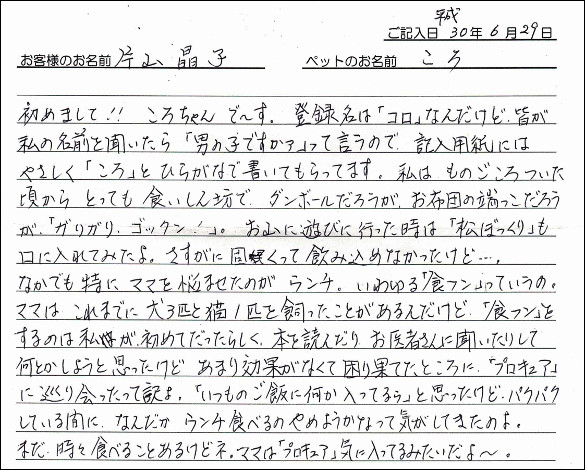 平成
ご記入日 30年6月29日
お客様のお名前 片山 晶子 ペットのお名前 ころ
初めまして!! ころちゃん で〜す。登録名は「コロ」なんだけど、皆が
私の名前を聞いたら「男の子ですかァ」って言うので、記入用紙には
やさしく「ころ」と ひらがなで書いてもらってます。私は ものごころついた
頃から とっても 食いしん坊で、ダンボールだろうが、お布団の端っこだろう
が、「ガリガリ、ゴックン!」。お山に遊びに行った時は「松ぼっくり」も
口に入れてみたよ。さすがに 固くって 飲み込めなかったけど…。
なかでも 特に ママを悩ませたのが ウンチ。いわゆる「食フン」っていうの。
ママは これまでに 犬3匹と猫1匹を飼ったことがあるんだけど、「食フン」を
するのは私が初めてだったらしく、本を読んだり お医者さんに聞いたりして
何とかしようと思ったけど あまり効果がなくて 困り果てたところに、「プロキュア」
に巡り会ったって訳よ。「いつものご飯に何か入ってるぅ」と思ったけど、パクパク
している間に、なんだか ウンチ食べるのやめようかなって気がしてきたのよ。
まだ、時々食べることあるけどネ。ママは「プロキュア」気に入ってるみたいだよ〜。